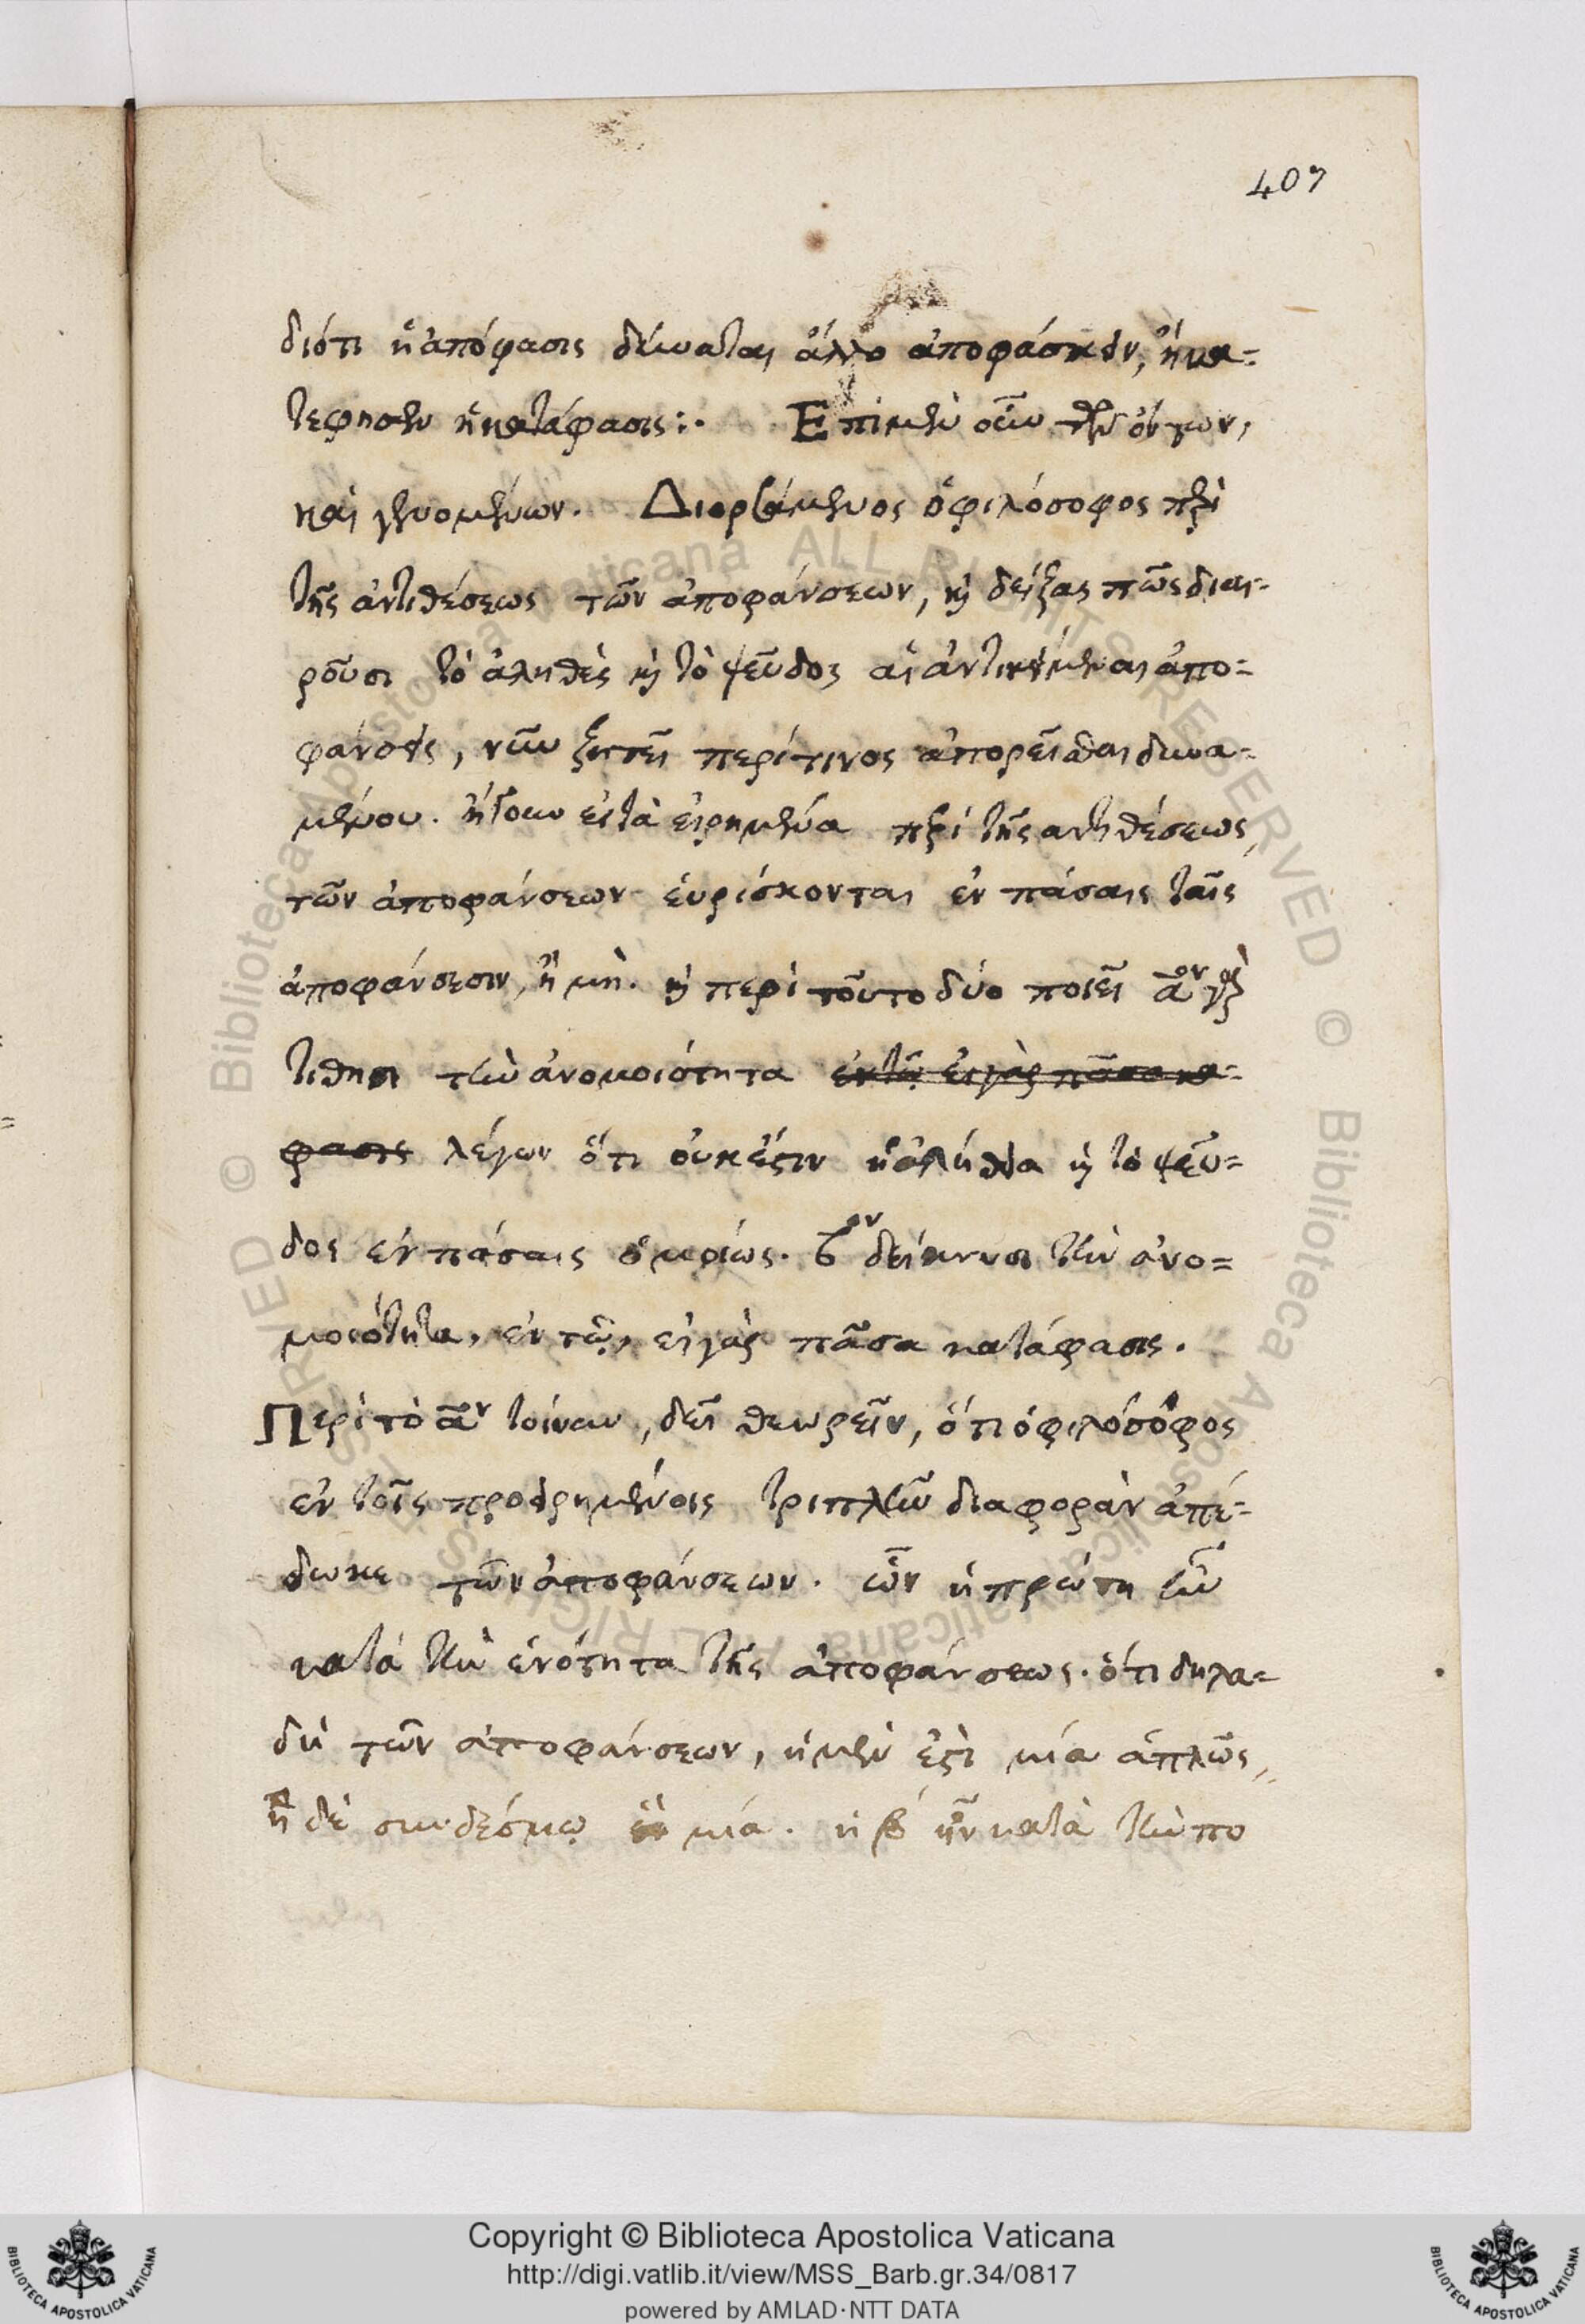 407
διότι ἡ ἀπόφασις δύναται ἄλλο ἀποφάσκειν, ἢ κα=
τέφησεν ἡ κατάφασις:. Ἐπὶ μὲν οὖν τῶν ὄντων,
καὶ γενομένων. Διορισάμενος ὁ φιλόσοφος περὶ
τῆς ἀντιθέσεως τῶν ἀποφάνσεων, καὶ δείξας πῶς διαι=
ροῦσι τὸ ἀληθὲς καὶ τὸ ψεῦδος αἱ ἀντικείμεναι ἀπο=
φάνσεις, νῦν ζητεῖ περί τινος ἀπορεῖσθαι δυνα=
μένου. ἤγουν εἰ τὰ εἰρημένα περὶ τῆς ἀντιθέσεως
τῶν ἀποφάνσεων εὑρίσκονται ἐν πάσαις ταῖς
ἀποφάνσεσιν, ἢ μή. καὶ περὶ τοῦτο δύο ποιεῖ αον γὰρ
τίθησι τὴν ἀνομοιότητα ἐν τῷ εἰ γὰρ πᾶσα κα=
φασις λέγων ὅτι οὐκ ἔστιν ἡ ἀλήθεια καὶ τὸ ψεῦ=
δος ἐν πάσαις ὁμοίως. βον δείκνυσι τὴν ἀνο=
μοιότητα, ἐν τῷ, εἰ γὰρ πᾶσα κατάφασις.
Περὶ τὸ αον τοίνυν, δεῖ θεωρεῖν, ὅτι ὁ φιλόσοφος
ἐν τοῖς προειρημένοις τριπλῆν διαφορὰν ἀπέ=
δωκε τῶν ἀποφάνσεων. ὧν ἡ πρώτη ἦν
κατὰ τὴν ἑνότητα τῆς ἀποφάνσεως. ὅτι δηλα=
δὴ τῶν ἀποφάνσεων, ἡ μὲν ἐστὶ μία ἁπλῶς,
ἡ δὲ συνδέσμῳ μία. ἡ β ἦν κατὰ τὴν πο
Copyright © Biblioteca Apostolica Vaticana
http://digi.vatlib.it/view/MSS_Barb.gr.34/0817
powered by AMLAD·NTT DATA